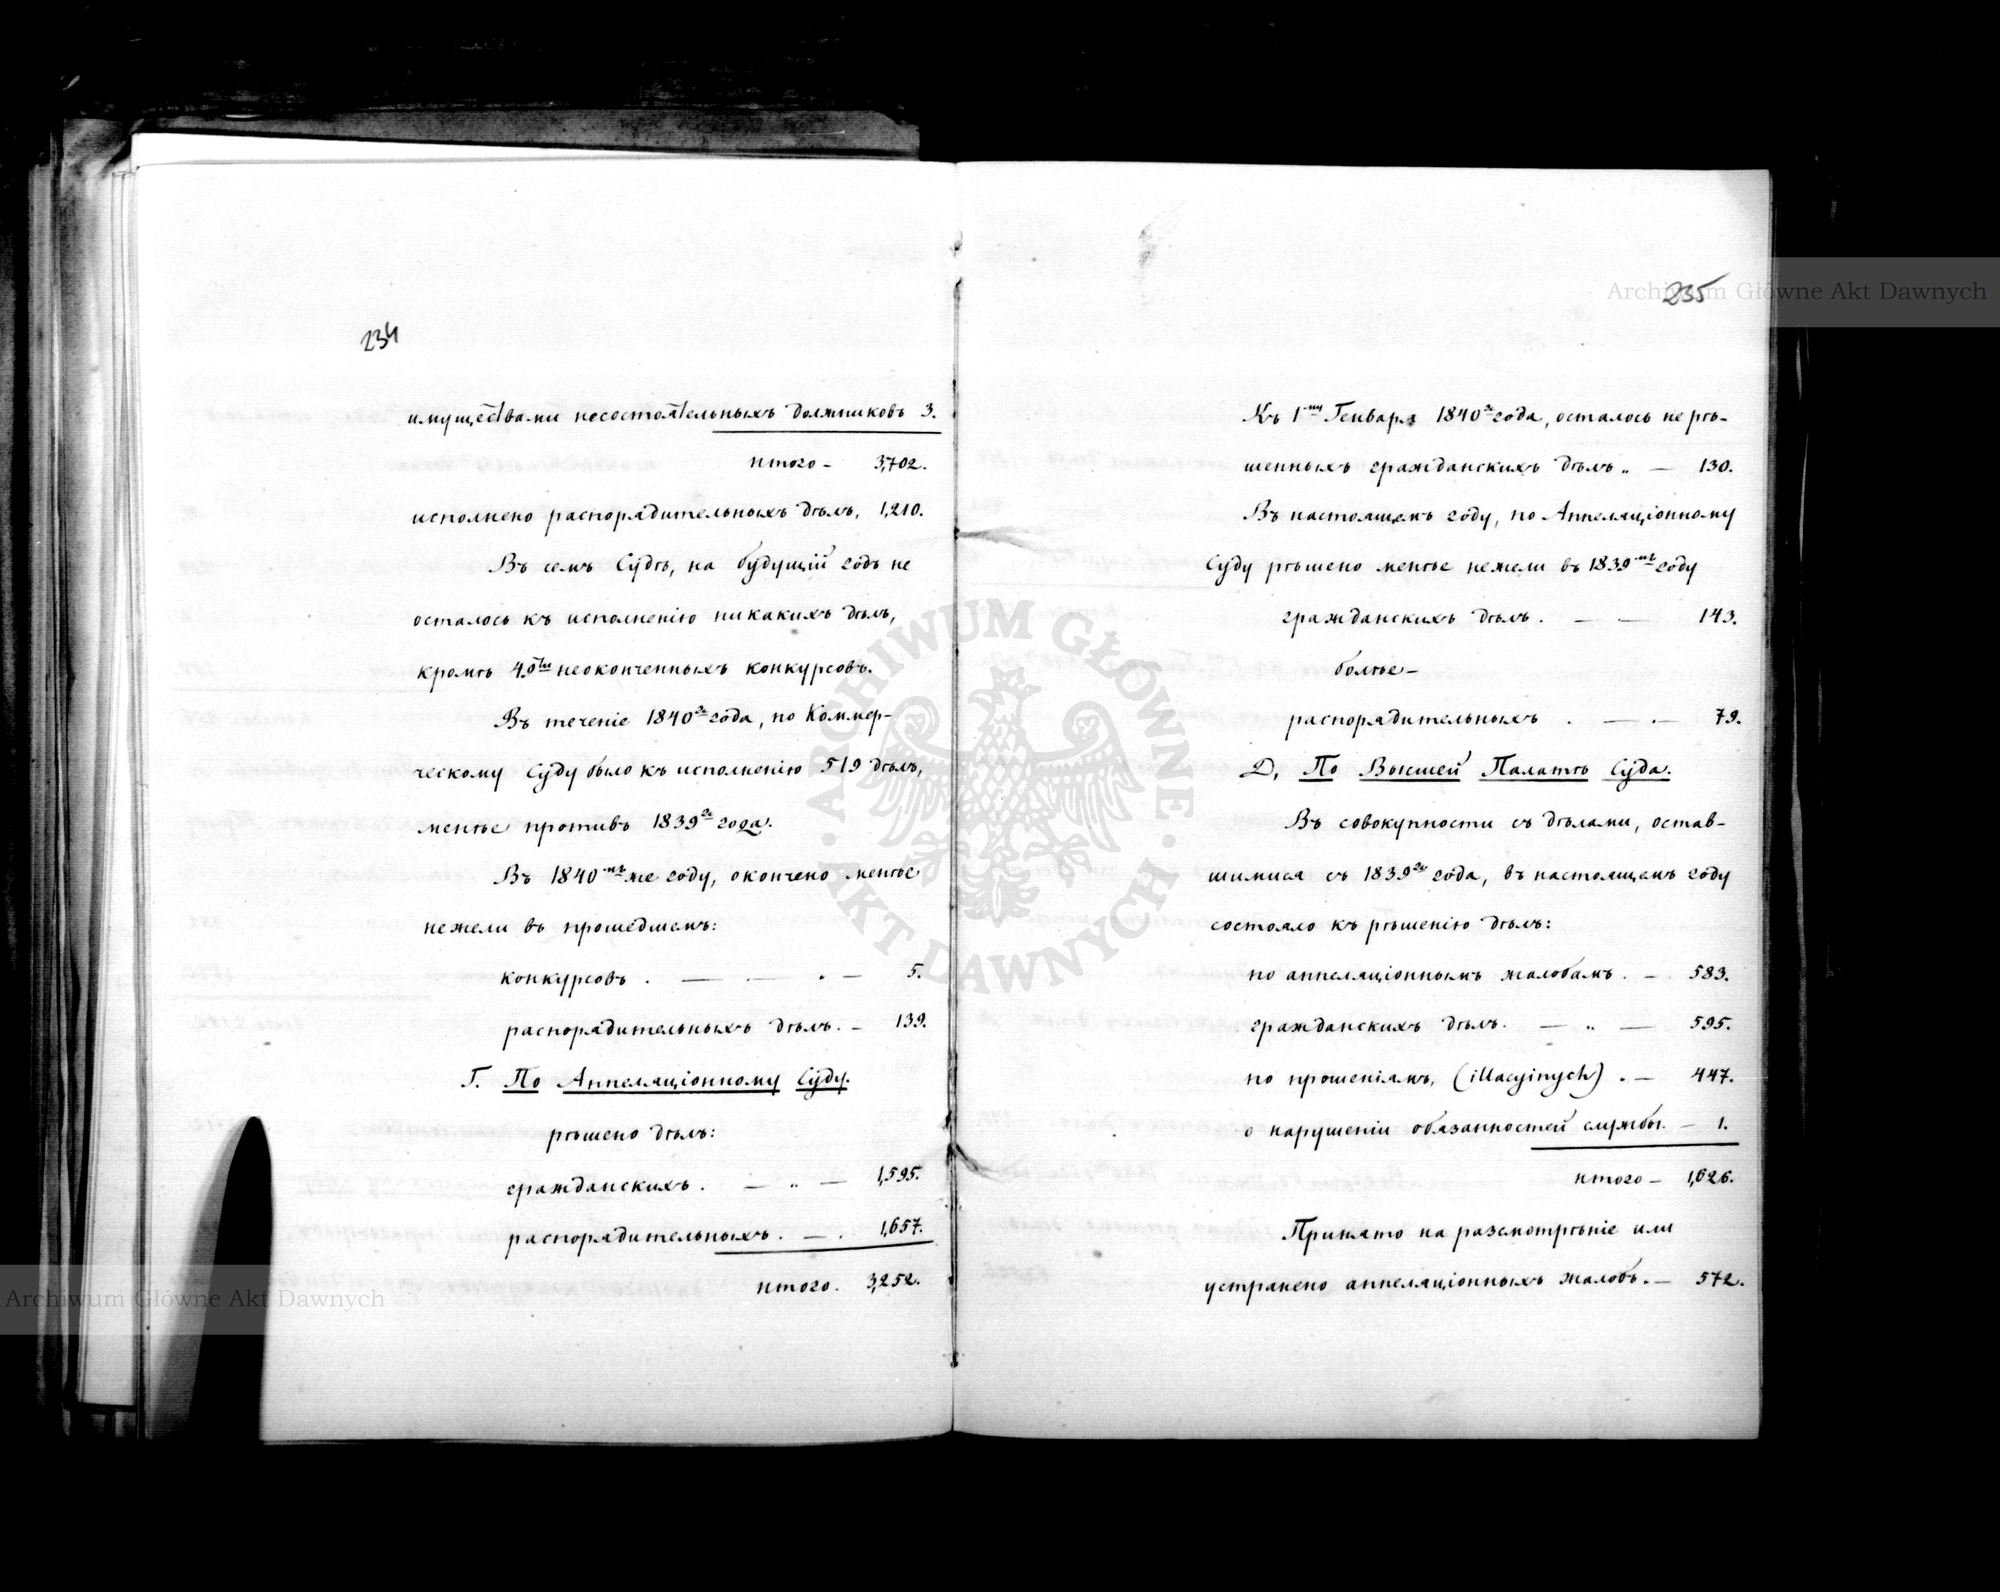 234
имуществами несостоятельныхъ должниковъ 3.
итого – 3,702.
исполнено распорядительныхъ дѣлъ, 1,210.
Въ семъ Судѣ, на будущій годъ не
осталось къ исполненію никакихъ дѣлъ,
кромѣ 49ти неоконченныхъ конкурсовъ.
Въ теченіе 1840го года, по Коммер-
ческому Суду было къ исполненію 519 дѣлъ,
менѣе противъ 1839го года.
Въ 1840мъ же году, окончено менѣе
нежели въ прошедшемъ:
конкурсовъ . — — . — 5.
распорядительныхъ дѣлъ. – 139.
Г. По Аппеляціонному Суду.
рѣшено дѣлъ:
гражданскихъ . — „ — 1,595.
распорядительныхъ . — . 1,657.
итого. 3,252.
235
Къ 1му Генваря 1840го года, осталось не рѣ-
шенныхъ гражданскихъ дѣлъ „ — 130.
Въ настоящемъ году, по Аппеляціонному
Суду рѣшено менѣе нежели въ 1839мъ году
гражданскихъ дѣлъ . — — 143.
болѣе –
распорядительныхъ . — . — 79.
Д, По Высшей Палатѣ Суда.
Въ совокупности съ дѣлами, остав-
шимися съ 1839го года, въ настоящемъ году
состояло къ рѣшенію дѣлъ:
по аппеляціоннымъ жалобамъ . – 583.
гражданскихъ дѣлъ. — „ — 595.
по прошеніямъ, (illacyinych) . – 447.
о нарушеніи обязанностей службы. – 1.
итого – 1,626.
Принято на разсмотрѣніе или
устранено аппеляціонныхъ жалобъ. – 572.
Archiwum Główne Akt Dawnych
Archiwum Główne Akt Dawnych
ARCHIWUM GŁÓWNE AKT DAWNYCH